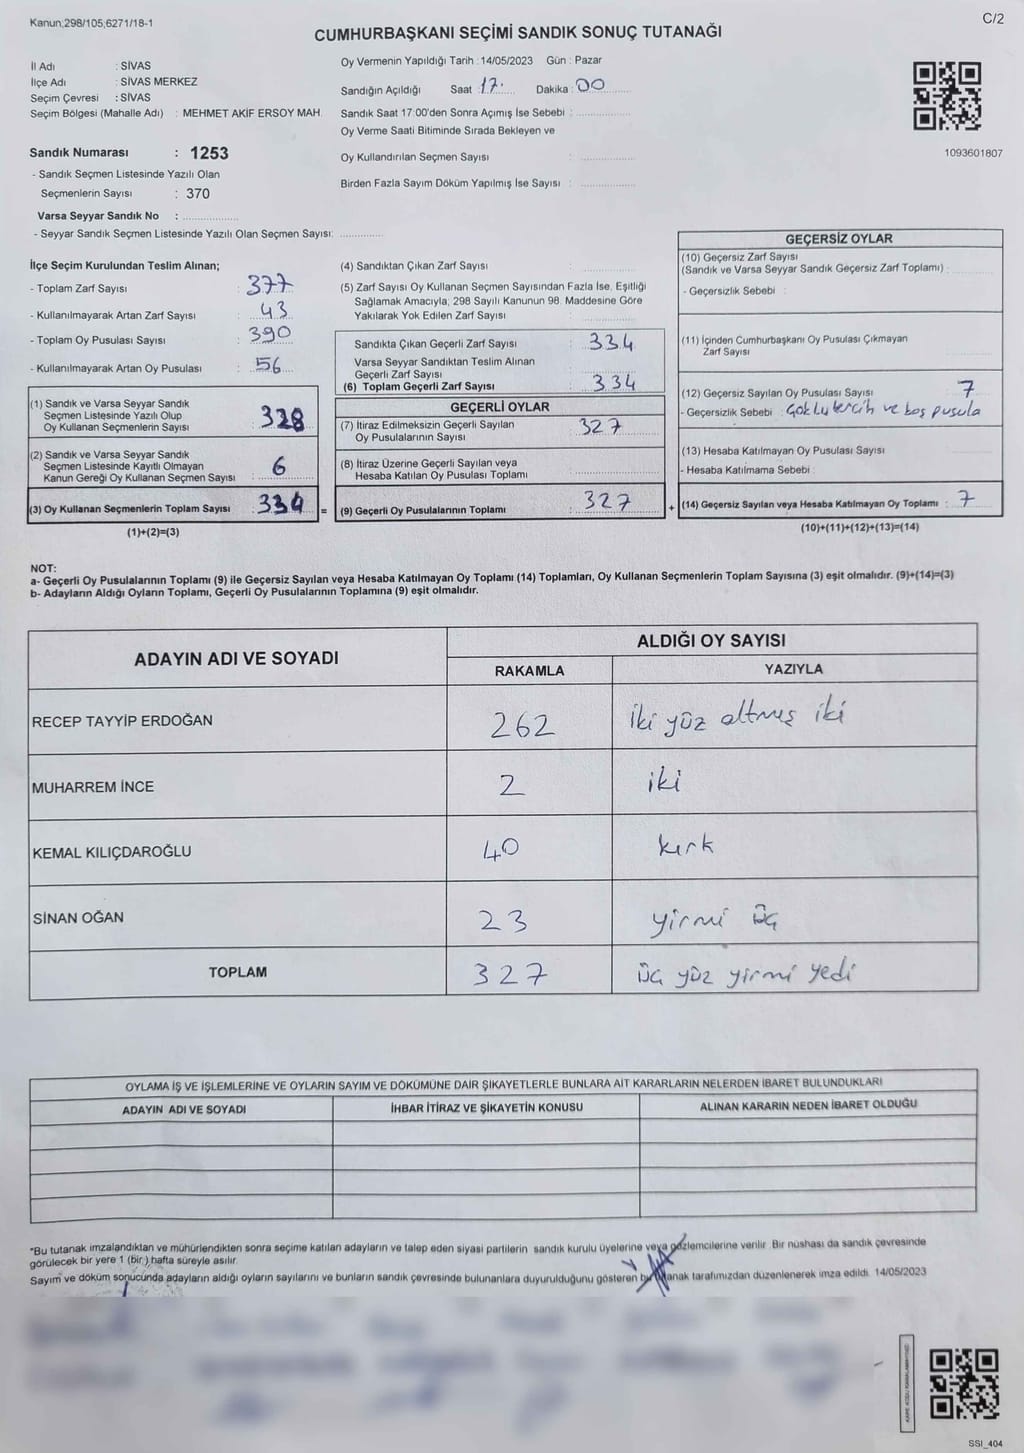 Kanun;298/105;6271/18-1
C/2
CUMHURBAŞKANI SEÇİMİ SANDIK SONUÇ TUTANAĞI
İl Adı : SİVAS
İlçe Adı : SİVAS MERKEZ
Seçim Çevresi : SİVAS
Seçim Bölgesi (Mahalle Adı) : MEHMET AKİF ERSOY MAH.
Sandık Numarası : 1253
- Sandık Seçmen Listesinde Yazılı Olan
Seçmenlerin Sayısı : 370
Varsa Seyyar Sandık No :
- Seyyar Sandık Seçmen Listesinde Yazılı Olan Seçmen Sayısı:
Oy Vermenin Yapıldığı Tarih : 14/05/2023 Gün : Pazar
Sandığın Açıldığı Saat : 17. Dakika : 00
Sandık Saat 17:00'den Sonra Açımış İse Sebebi :
Oy Verme Saati Bitiminde Sırada Bekleyen ve
Oy Kullandırılan Seçmen Sayısı :
Birden Fazla Sayım Döküm Yapılmış İse Sayısı :
1093601807
İlçe Seçim Kurulundan Teslim Alınan;
- Toplam Zarf Sayısı : 377
- Kullanılmayarak Artan Zarf Sayısı : 43
- Toplam Oy Pusulası Sayısı : 390
- Kullanılmayarak Artan Oy Pusulası : 56
(1) Sandık ve Varsa Seyyar Sandık
Seçmen Listesinde Yazılı Olup
Oy Kullanan Seçmenlerin Sayısı : 328
(2) Sandık ve Varsa Seyyar Sandık
Seçmen Listesinde Kayıtlı Olmayan
Kanun Gereği Oy Kullanan Seçmen Sayısı : 6
(3) Oy Kullanan Seçmenlerin Toplam Sayısı : 334 =
(1)+(2)=(3)
(4) Sandıktan Çıkan Zarf Sayısı :
(5) Zarf Sayısı Oy Kullanan Seçmen Sayısından Fazla İse, Eşitliği
Sağlamak Amacıyla, 298 Sayılı Kanunun 98. Maddesine Göre
Yakılarak Yok Edilen Zarf Sayısı :
Sandıkta Çıkan Geçerli Zarf Sayısı : 334
Varsa Seyyar Sandıktan Teslim Alınan
Geçerli Zarf Sayısı :
(6) Toplam Geçerli Zarf Sayısı : 334
GEÇERLİ OYLAR
(7) İtiraz Edilmeksizin Geçerli Sayılan
Oy Pusulalarının Sayısı : 327
(8) İtiraz Üzerine Geçerli Sayılan veya
Hesaba Katılan Oy Pusulası Toplamı :
(9) Geçerli Oy Pusulalarının Toplamı : 327 +
GEÇERSİZ OYLAR
(10) Geçersiz Zarf Sayısı
(Sandık ve Varsa Seyyar Sandık Geçersiz Zarf Toplamı) :
- Geçersizlik Sebebi :
(11) İçinden Cumhurbaşkanı Oy Pusulası Çıkmayan
Zarf Sayısı
(12) Geçersiz Sayılan Oy Pusulası Sayısı : 7
- Geçersizlik Sebebi : Çoklu tercih ve boş pusula
(13) Hesaba Katılmayan Oy Pusulası Sayısı :
- Hesaba Katılmama Sebebi :
(14) Geçersiz Sayılan veya Hesaba Katılmayan Oy Toplamı : 7
(10)+(11)+(12)+(13)=(14)
NOT:
a- Geçerli Oy Pusulalarının Toplamı (9) ile Geçersiz Sayılan veya Hesaba Katılmayan Oy Toplamı (14) Toplamları, Oy Kullanan Seçmenlerin Toplam Sayısına (3) eşit olmalıdır. (9)+(14)=(3)
b- Adayların Aldığı Oyların Toplamı, Geçerli Oy Pusulalarının Toplamına (9) eşit olmalıdır.
ADAYIN ADI VE SOYADI ALDIĞI OY SAYISI
RAKAMLA YAZIYLA
RECEP TAYYİP ERDOĞAN 262 iki yüz altmış iki
MUHARREM İNCE 2 iki
KEMAL KILIÇDAROĞLU 40 kırk
SİNAN OĞAN 23 yirmi üç
TOPLAM 327 üç yüz yirmi yedi
OYLAMA İŞ VE İŞLEMLERİNE VE OYLARIN SAYIM VE DÖKÜMÜNE DAİR ŞİKAYETLERLE BUNLARA AİT KARARLARIN NELERDEN İBARET BULUNDUKLARI
ADAYIN ADI VE SOYADI İHBAR İTİRAZ VE ŞİKAYETİN KONUSU ALINAN KARARIN NEDEN İBARET OLDUĞU
*Bu tutanak imzalandıktan ve mühürlendikten sonra seçime katılan adayların ve talep eden siyasi partilerin sandık kurulu üyelerine veya gözlemcilerine verilir. Bir nüshası da sandık çevresinde
görülecek bir yere 1 (bir ) hafta süreyle asılır.
Sayım ve döküm sonucunda adayların aldığı oyların sayılarını ve bunların sandık çevresinde bulunanlara duyurulduğunu gösteren bu tutanak tarafımızdan düzenlenerek imza edildi. 14/05/2023
SSI_404